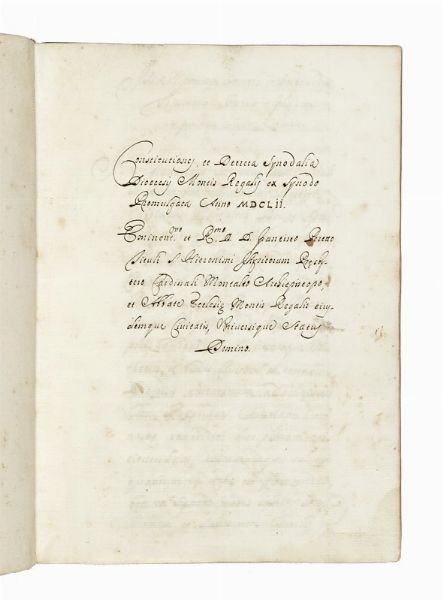 Constitutiones, et Decreta Synodalia
Diocesis Montis Regalis ex Synodo
Promulgata Anno MDCLII.
Eminent.mo et R.mo D. D. Francisco Peretto
Tituli S. Hieronimi Illyricorum Presby
tero Cardinali Montalto Archiepiscopo,
et Abbate Ecclesiæ Montis Regalis eius,
demque Civitatis, Universique Status
Domino.